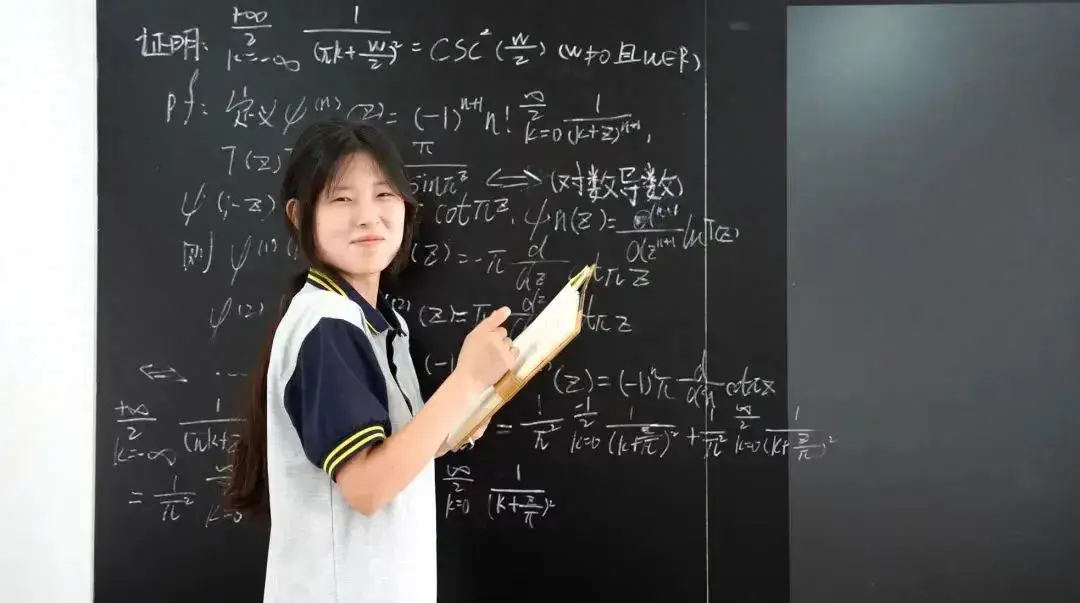 证明: +∞ 2 k=-∞ 1/(πk+w/2)² = CSC²(w/2) (w≠0且w∈R)
pf: 定义ψ⁽ⁿ⁾(z)=(-1)ⁿ⁺¹n! ∞ 2 k=0 1/(k+z)ⁿ⁺¹,
T(z) π/sinπz ⟺ (对数导数)
ψ(1-z) cotπz. ψn(z)= d⁽ⁿ⁺¹⁾/dzⁿ⁺¹ lnT(z)
则 ψ⁽¹⁾ (z)=-π d/dz πz
ψ⁽²⁾ ⁽²⁾(z)=π d² tπz
⟺ ⋯ (-1) (z)=(-1)ⁿπ d/dzⁿ cotπz
+∞ 2 k=-∞ 1/(πk+z = 1/π² -1 2 k=0 1/(k+z/π)² + 1/π² ∞ 2 k=0 1/(k+z/π)²
= 1/π² ∞ 2 k=0 ∞ 2 k=0 1/(k+z/π)²